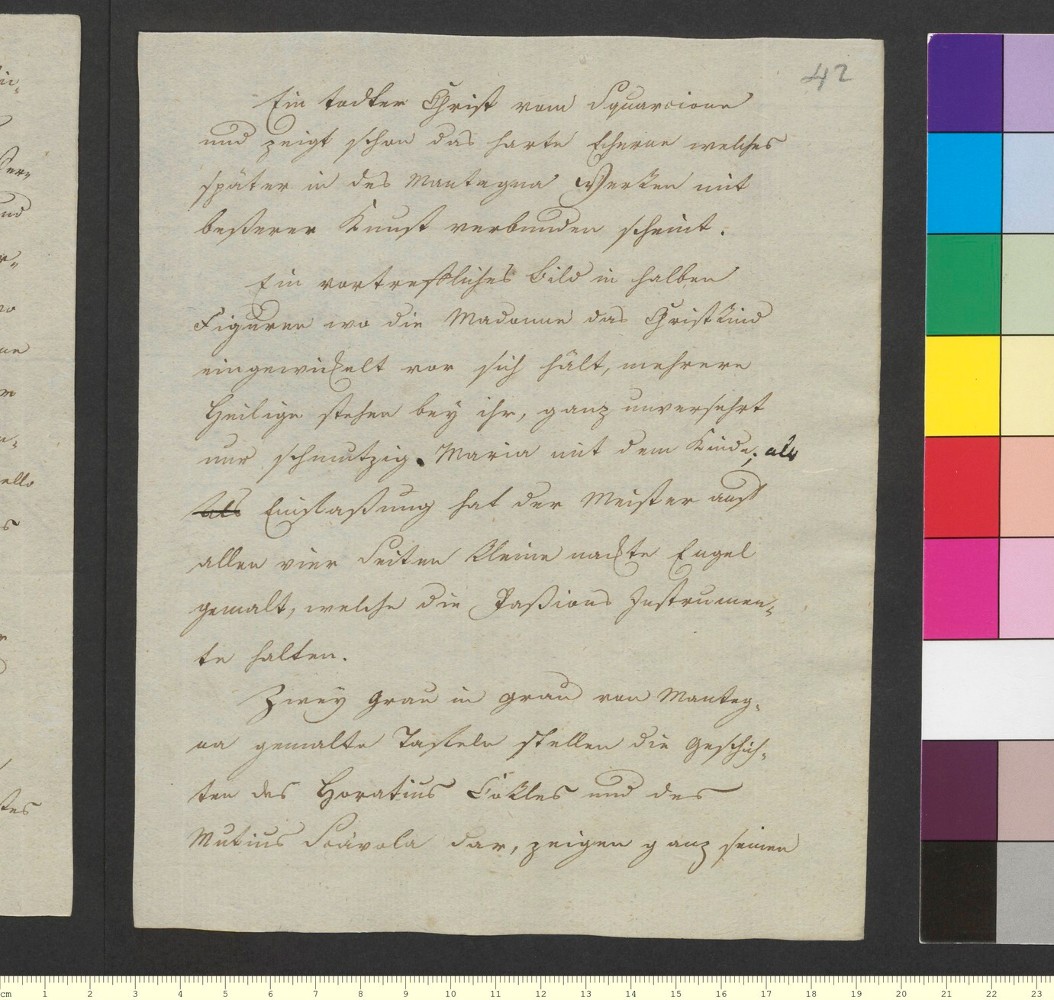 42
Ein todter Christ vom Squarcione
und zeigt schon das harte Eherne welches
später in des Mantagna Werken mit
beßerer Kunst verbunden scheint.
Ein vortrefliches Bild in halben
Figuren wo die Madonna das Christkind
eingewickelt vor sich hält, mehrere
Heilige stehen bey ihr, ganz unversehrt
nur schmutzig. Maria mit dem Kinde, als
als Einfaßung hat der Meister auf
allen vier Seiten kleine nackte Engel
gemalt, welche die Paßions Instrumen-
te halten.
Zwey grau in grau von Manteg-
na gemalte Tafeln stellen die Geschich-
ten des Horatius Cokles und des
Mutius Scävola dar, zeigen ganz seinen